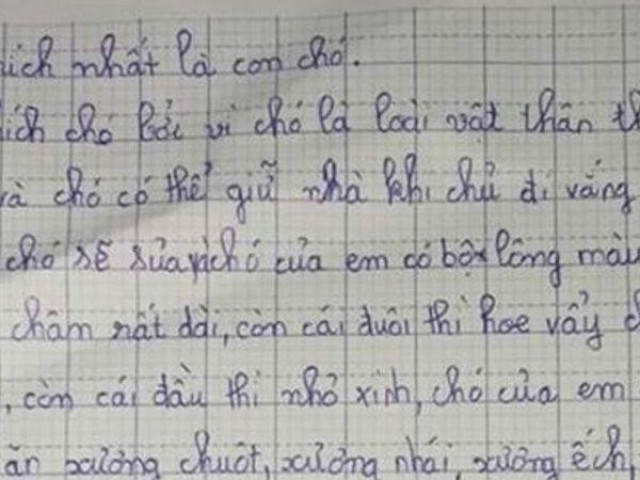 ích nhất là con chó.
ích chó bởi vì chó là loài vật thân th
và chó có thể giữ nhà khi chủ đi vắng
chó sẽ sủa, chó của em có bộ lông màu
chân rất dài, còn cái đuôi thì hoe vẩy
, còn cái đầu thì nhỏ xinh, chó của em
ăn xương chuột, xương nhái, xương ếch,